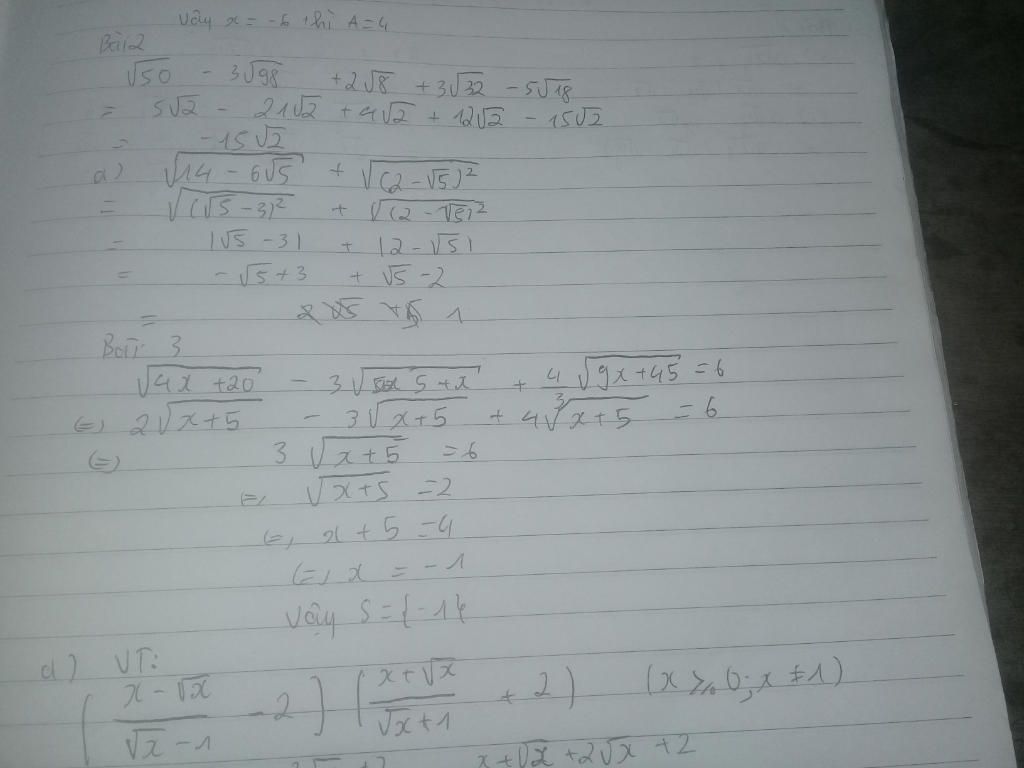 Vậy x = -6 thì A = 4
Bài 2
√50 - 3√98 + 2√8 + 3√32 - 5√18
= 5√2 - 21√2 + 4√2 + 12√2 - 15√2
= -15√2
a) √(14 - 6√5) + √((2 - √5)²)
= √((√5 - 3)²) + √((2 - √5)²)
= |√5 - 3| + |2 - √5|
= -√5 + 3 + √5 - 2
= 1
Bài 3
√(4x + 20) - 3√(5 + x) + 4/3 √(9x + 45) = 6
⇔ 2√(x + 5) - 3√(x + 5) + 4√(x + 5) = 6
⇔ 3√(x + 5) = 6
⇔ √(x + 5) = 2
⇔ x + 5 = 4
⇔ x = -1
Vậy S = {-1}
a) VT:
((x - √x)/(√x - 1) - 2) ((x + √x)/(√x + 1) + 2) (x ≥ 0; x ≠ 1)
x + √x + 2√x + 2